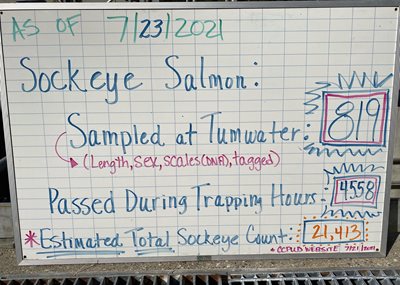 AS OF 7/23/2021
Sockeye Salmon:
Sampled at Tumwater: 819
(Length, Sex, Scales (DNA), tagged)
Passed During Trapping Hours: 4558
*Estimated Total Sockeye Count: 21,413
* CCPUD WEBSITE 7/21/2021